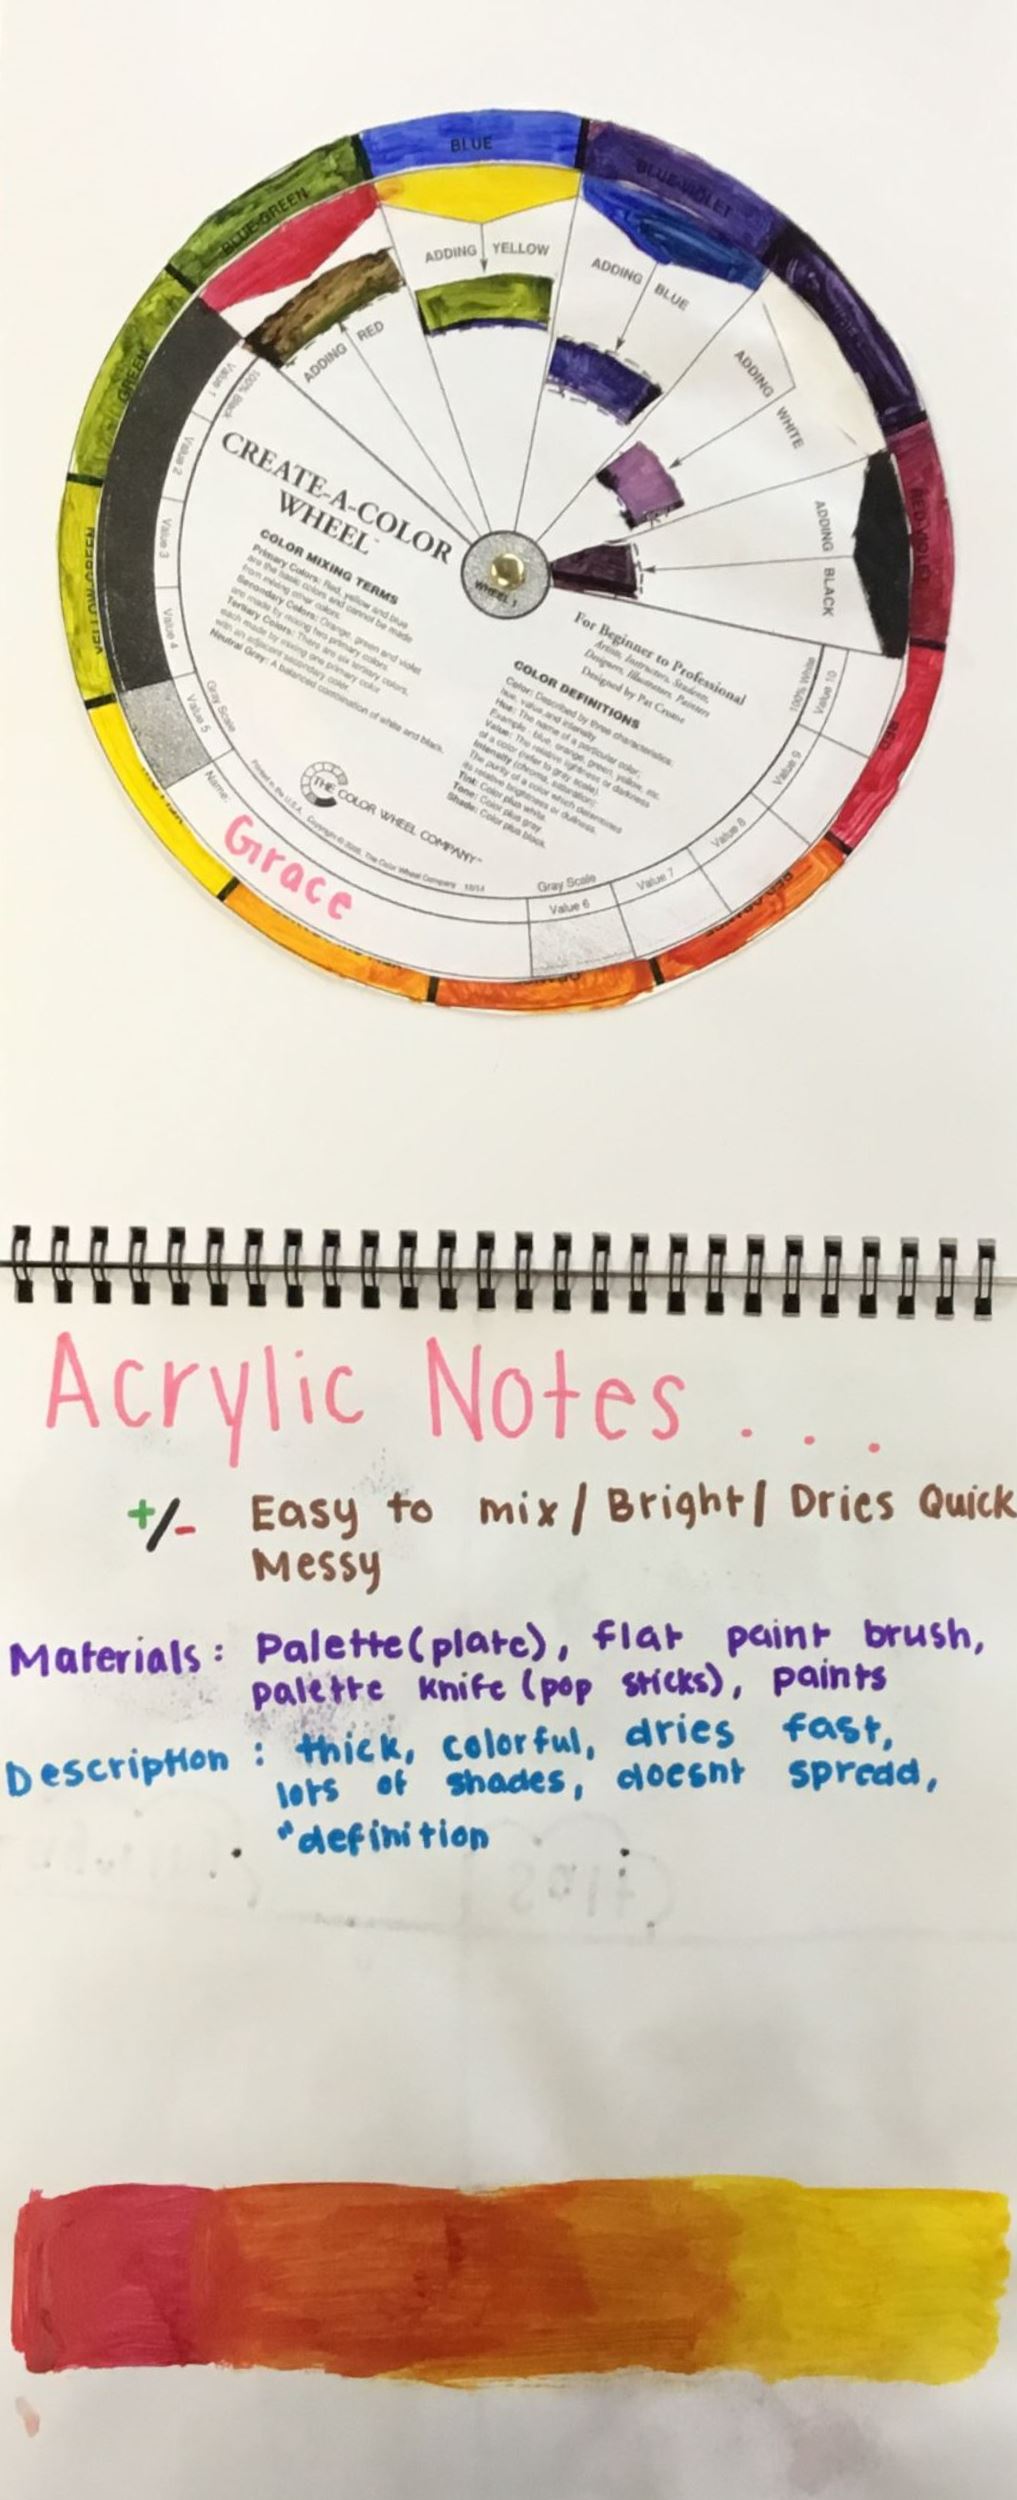 BLUE
BLUE-VIOLET
BLUE-GREEN
GREEN
YELLOW-GREEN
RED-VIOLET
RED
ADDING RED
ADDING YELLOW
ADDING BLUE
ADDING WHITE
ADDING BLACK
100% Black
Value 1
Value 2
Value 3
Value 4
Value 5
Gray Scale
CREATE-A-COLOR
WHEEL
COLOR MIXING TERMS
Primary Colors: Red, yellow and blue
are the basic colors and cannot be made
from mixing other colors.
Secondary Colors: Orange, green and violet
are made by mixing two primary colors.
Tertiary Colors: There are six tertiary colors,
each made by mixing one primary color
with an adjacent secondary color.
Neutral Gray: A balanced combination of white and black.
WHEEL 1
For Beginner to Professional
Artists, Instructors, Students,
Designers, Illustrators, Painters
Designed by Pat Creane
COLOR DEFINITIONS
Color: Described by three characteristics:
hue, value and intensity
Hue: The name of a particular color;
Example: blue, orange, green, yellow, etc.
Value: The relative lightness or darkness
of a color (refer to gray scale).
Intensity (chroma, saturation):
The purity of a color which determines
its relative brightness or dullness.
Tint: Color plus white.
Tone: Color plus gray.
Shade: Color plus black.
100% White
Value 10
Value 9
Value 8
Value 7
Value 6
Gray Scale
THE COLOR WHEEL COMPANY™
Printed in the U.S.A. Copyright © The Color Wheel Company
Name:
Grace
Acrylic Notes...
+/- Easy to mix/ Bright/ Dries Quick
Messy
Materials: Palette(plate), flat paint brush,
palette knife (pop sticks), paints
Description: thick, colorful, dries fast,
lots of shades, doesnt spread,
"definition